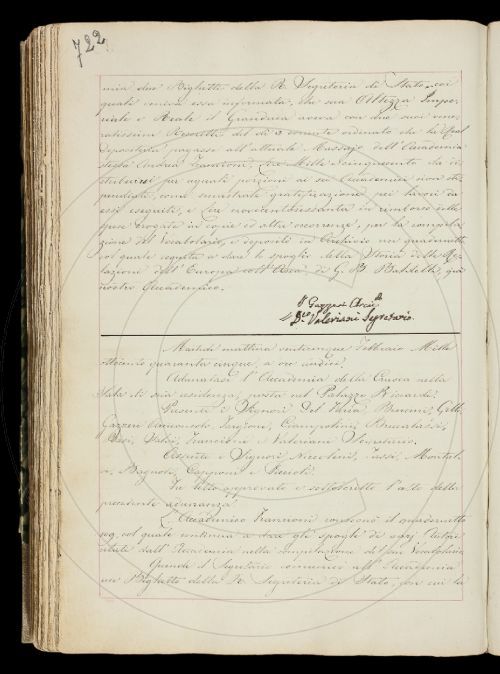 722
mia due Biglietti della R. Segreteria di Stato, coi
quali veniva essa informata, che sua Altezza Impe-
riale e Reale il Granduca aveva con due suoi vene-
ratissimi Rescritti del dì 3 corrente ordinato che la Real
Depositeria pagasse all'attuale Massajo dell'Accademia
stessa Andrea Francioni Lire Mille seicinquecento da di-
stribuirsi per uguali porzioni ai sei Accademici non sti-
pendiati, come annue gratificazione pei lavori da
essi eseguiti, e Lire novecentosessanta in rimborso delle
spese erogate in copie ed altre occorrenze, per la compila-
zione del Vocabolario, e depositò in Archivio un quadernetto
col quale seguita a dare lo spoglio della Storia delle Re-
lazioni dell'Europa coll'Asia di G. B. Baldelli, già
nostro Accademico.
Gazzeri Arcic.
Valeriani Segretario.
Martedì mattina venticinque Febbraio Mille
ottocento quaranta cinque, a ore undici.
Adunatasi l'Accademia della Crusca nella
Sala di sua residenza, posta nel Palazzo Riccardi:
Presenti i Signori Del Furia, Bencini,
Gazzeri Targioni, Ciampolini, Brucalassi,
Francioni e Valeriani Segretario.
Assenti i Signori Niccolini, Montal-
vi, Bagnoli, Capponi e
Fu letto approvato e sottoscritto l'atto della
precedente adunanza.
L'Accademico Francioni consegnò il quadernetto
109, col quale continua a dare gli spogli di varj Autori
citati dall'Accademia nella compilazione del suo Vocabolario
Quindi il Segretario comunicò all'Accademia
un Biglietto della R. Segreteria di Stato, con cui la